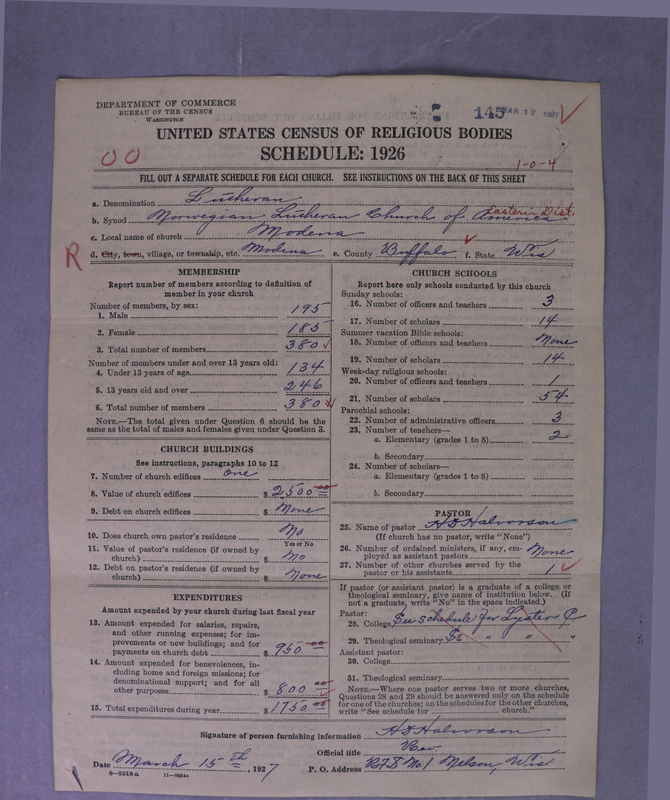 DEPARTMENT OF COMMERCE
BUREAU OF THE CENSUS
WASHINGTON
145 MAR 17 1927
UNITED STATES CENSUS OF RELIGIOUS BODIES
SCHEDULE: 1926
00
1-0-4
FILL OUT A SEPARATE SCHEDULE FOR EACH CHURCH. SEE INSTRUCTIONS ON THE BACK OF THIS SHEET
a. Denomination Lutheran
b. Synod Norwegian Lutheran Church of America Eastern Dist.
c. Local name of church Modena
R d. City, town, village, or township, etc. Modena e. County Buffalo f. State Wis
MEMBERSHIP
Report number of members according to definition of
member in your church
Number of members, by sex:
1. Male 195
2. Female 185
3. Total number of members 380
Number of members under and over 13 years old:
4. Under 13 years of age 134
5. 13 years old and over 246
6. Total number of members 380
NOTE.—The total given under Question 6 should be
same as the total of males and females given under Question 3.
CHURCH BUILDINGS
See instructions, paragraphs 10 to 12
7. Number of church edifices one
8. Value of church edifices $ 2500.00
9. Debt on church edifices $ None
10. Does church own pastor's residence No
Yes or No
11. Value of pastor's residence (if owned by
church) $ No
12. Debt on pastor's residence (if owned by
church) $ None
EXPENDITURES
Amount expended by your church during last fiscal year
13. Amount expended for salaries, repairs,
and other running expenses; for im-
provements or new buildings; and for
payments on church debt $ 950.00
14. Amount expended for benevolences, in-
cluding home and foreign missions; for
denominational support; and for all
other purposes $ 800.00
15. Total expenditures during year $ 1750.00
CHURCH SCHOOLS
Report here only schools conducted by this church
Sunday schools:
16. Number of officers and teachers 3
17. Number of scholars 14
Summer vacation Bible schools:
18. Number of officers and teachers None
19. Number of scholars 14
Week-day religious schools:
20. Number of officers and teachers 1
21. Number of scholars 54
Parochial schools:
22. Number of administrative officers 3
23. Number of teachers—
a. Elementary (grades 1 to 8) 2
b. Secondary
24. Number of scholars—
a. Elementary (grades 1 to 8)
b. Secondary
PASTOR
25. Name of pastor H S Halvorson
(If church has no pastor, write "None")
26. Number of ordained ministers, if any, em-
ployed as assistant pastors None
27. Number of other churches served by the
pastor or his assistants 1
If pastor (or assistant pastor) is a graduate of a college or
theological seminary, give name of institution below. (If
not a graduate, write "No" in the space indicated.)
Pastor:
28. College See schedule for Lyster
29. Theological seminary " " "
Assistant pastor:
30. College
31. Theological seminary
NOTE.—Where one pastor serves two or more churches,
Questions 28 and 29 should be answered only on the schedule
for one of the churches; on the schedules for the other churches,
write "See schedule for church."
Signature of person furnishing information H S Halvorson
Official title Rev.
Date March 15th, 1927 P. O. Address RFD No 1 Nelson, Wis
8-5518a 11-9254a